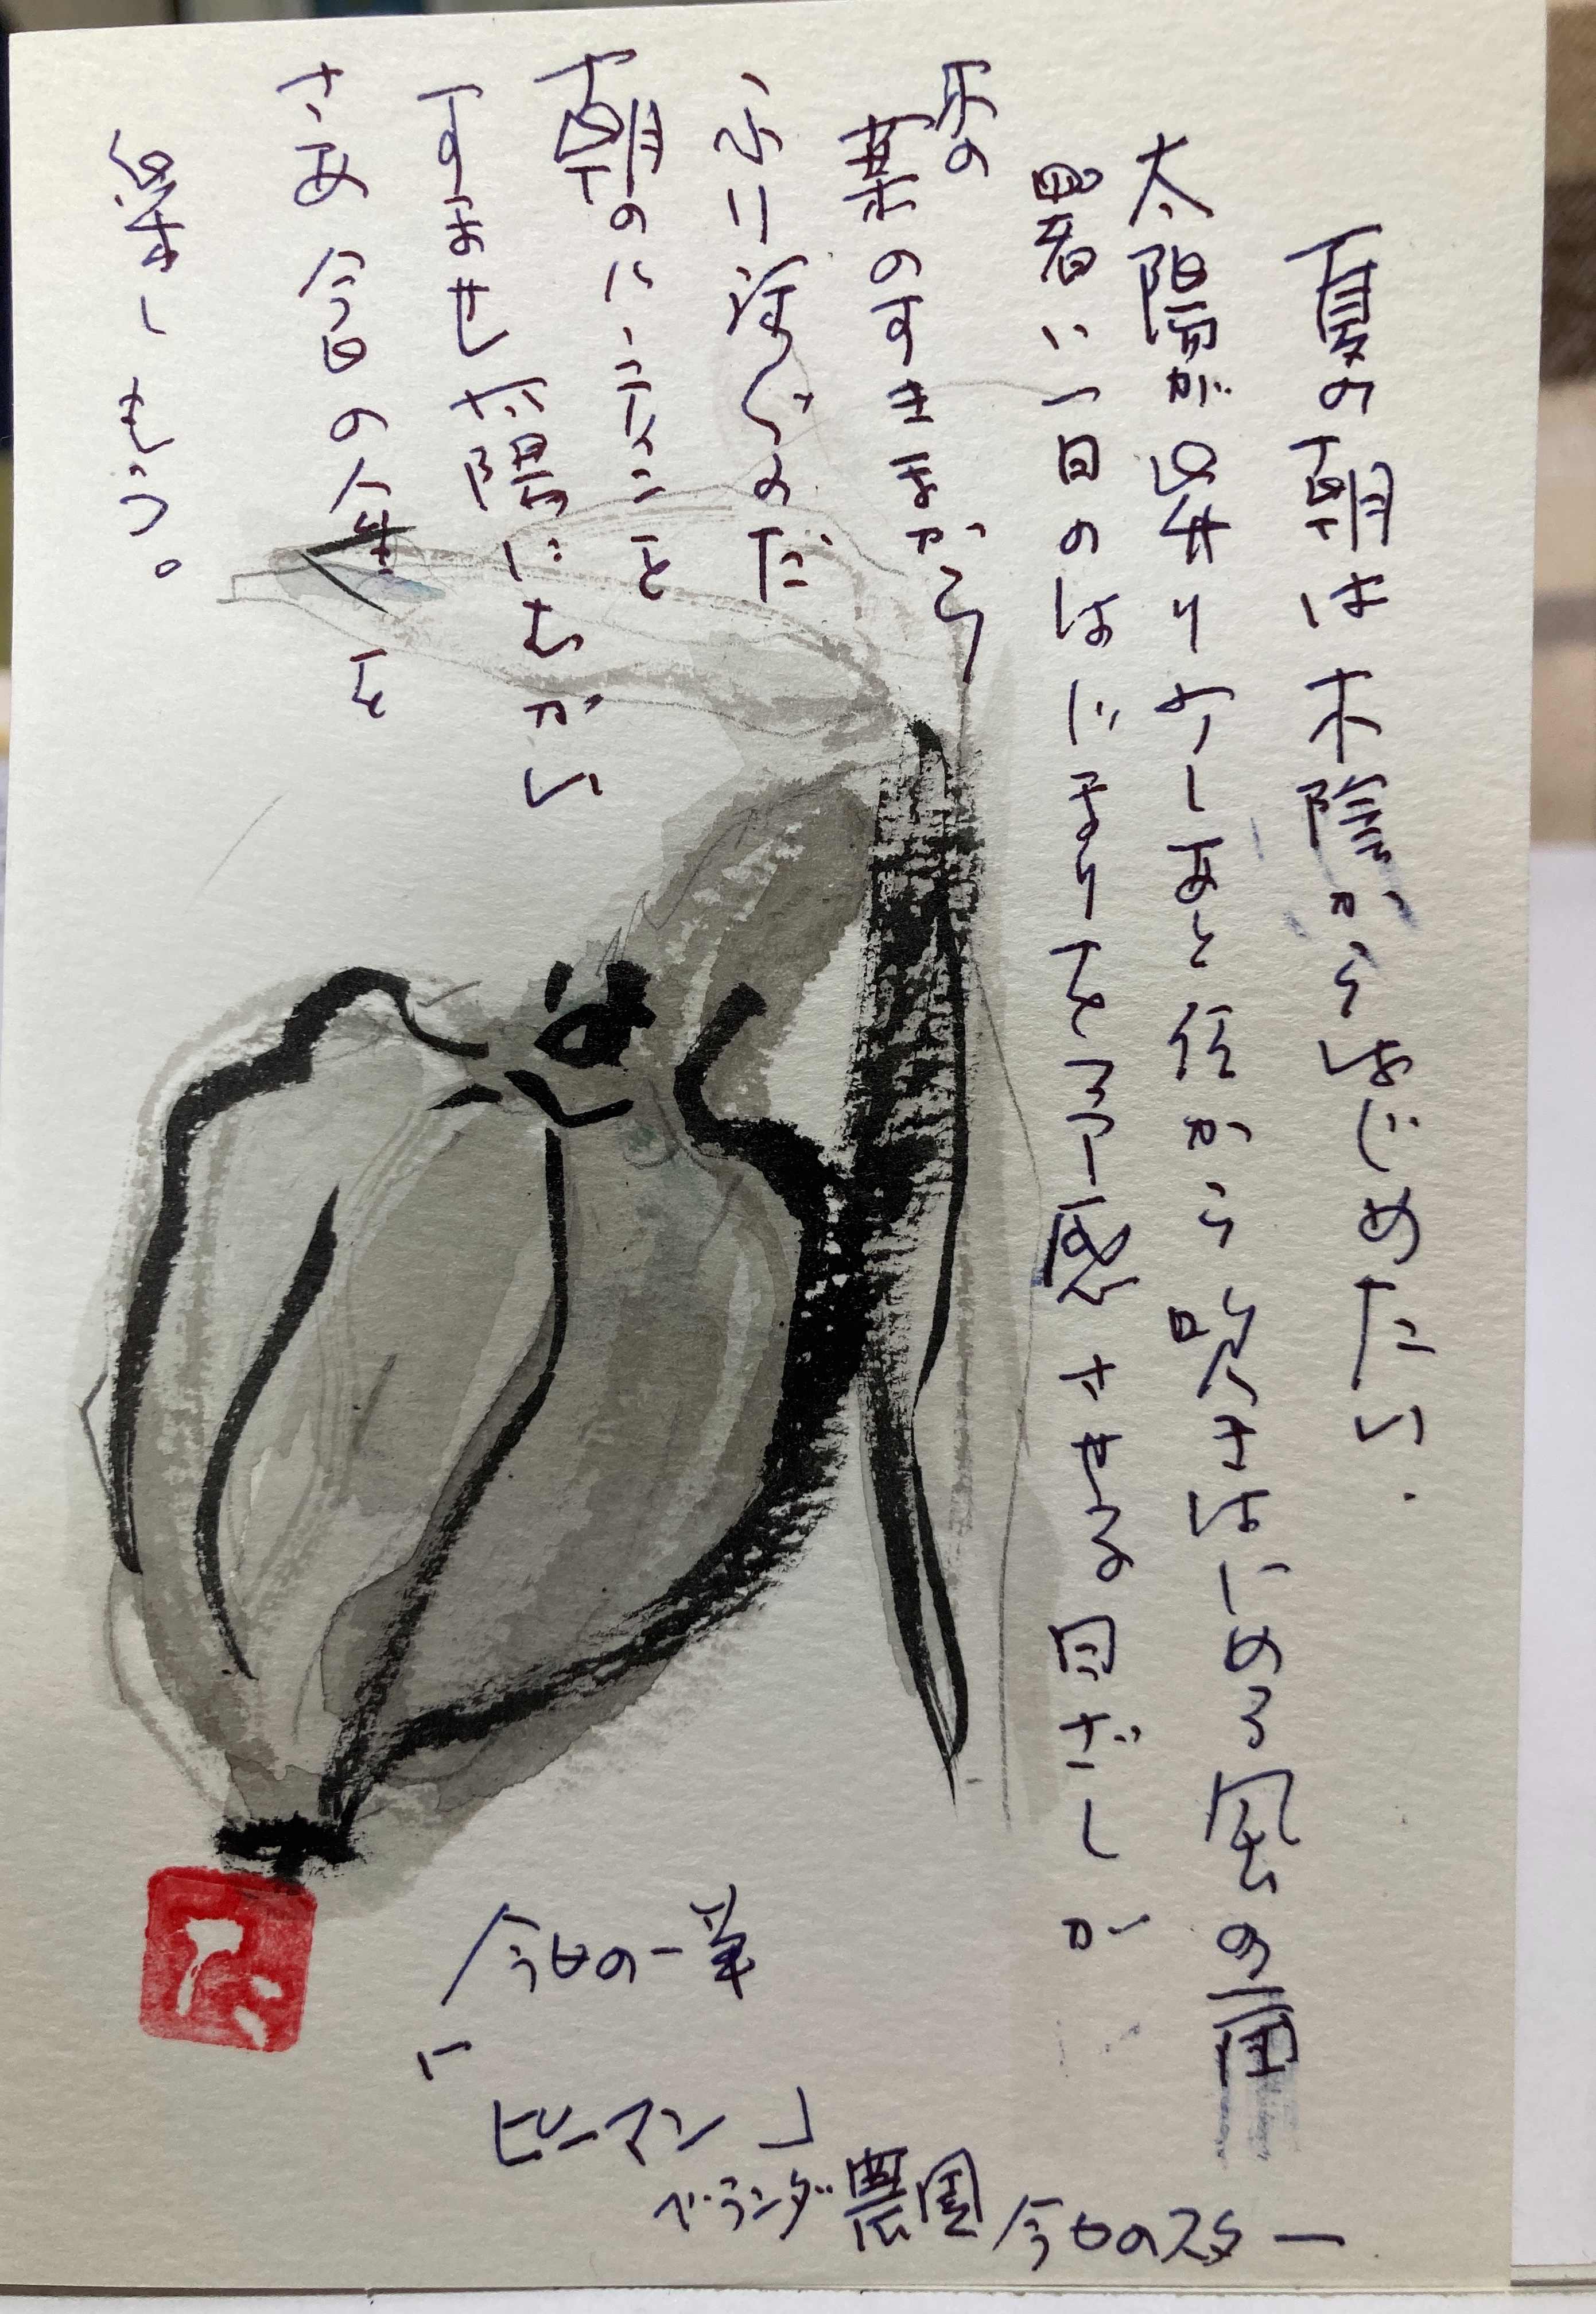 夏の朝は木陰からはじめたい.
太陽が昇りすーぽと径から吹きはじめる風の扉
暑い1日のはじまりを予感させる日ざしが
木の
葉のすきまから
に
朝の
すませ太陽にむかい
さあ今日の人生を
楽しもう。
今日の一筆
「ピーマン」
ベランダ農園 今日のスター